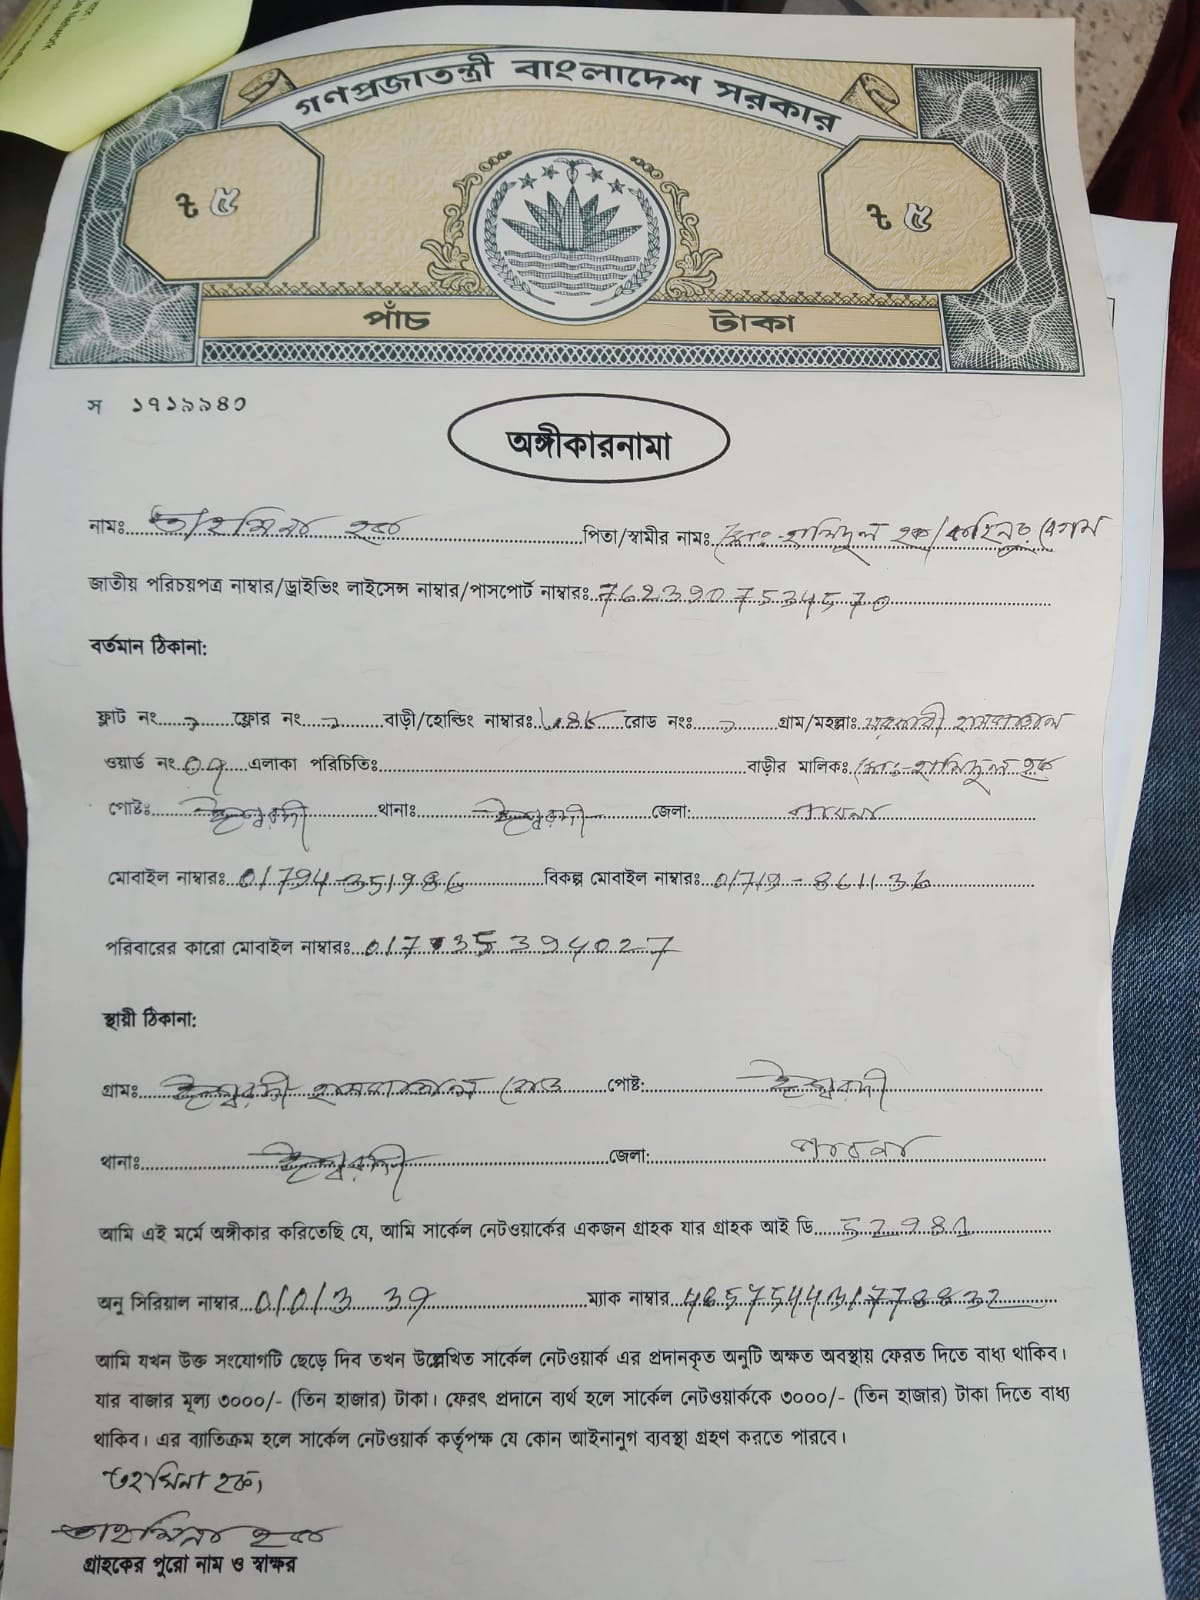 গণপ্রজাতন্ত্রী বাংলাদেশ সরকার
৳ ৫ ৳ ৫
পাঁচ টাকা
স ১৭১৯৯৪৩
অঙ্গীকারনামা
নামঃ তাহমিনা হক পিতা/স্বামীর নাম: মোঃ-হামিদুল হক/কহিনুর বেগম
জাতীয় পরিচয়পত্র নাম্বার/ড্রাইভিং লাইসেন্স নাম্বার/পাসপোর্ট নাম্বারঃ 7623907534570
বর্তমান ঠিকানা:
ফ্লাট নং ফ্লোর নং বাড়ী/হোল্ডিং নাম্বারঃ রোড নংঃ গ্রাম/মহল্লাঃ সরকারী হাসপাতাল
ওয়ার্ড নং 07 এলাকা পরিচিতিঃ বাড়ীর মালিকঃ মোঃ-হামিদুল হক
পোষ্টঃ ঈশ্বরদী থানাঃ ঈশ্বরদী জেলা: পাবনা
মোবাইল নাম্বারঃ 01794-351986 বিকল্প মোবাইল নাম্বারঃ 01719-861136
পরিবারের কারো মোবাইল নাম্বারঃ
স্থায়ী ঠিকানা:
গ্রামঃ ঈশ্বরদী হাসপাতাল রোড পোষ্ট: ঈশ্বরদী
থানাঃ ঈশ্বরদী জেলা: পাবনা
আমি এই মর্মে অঙ্গীকার করিতেছি যে, আমি সার্কেল নেটওয়ার্কের একজন গ্রাহক যার গ্রাহক আই ডি
অনু সিরিয়াল নাম্বার ম্যাক নাম্বার
আমি যখন উক্ত সংযোগটি ছেড়ে দিব তখন উল্লেখিত সার্কেল নেটওয়ার্ক এর প্রদানকৃত অনুটি অক্ষত অবস্থায় ফেরত দিতে বাধ্য থাকিব।
যার বাজার মূল্য ৩০০০/- (তিন হাজার) টাকা। ফেরৎ প্রদানে ব্যর্থ হলে সার্কেল নেটওয়ার্ককে ৩০০০/- (তিন হাজার) টাকা দিতে বাধ্য
থাকিব। এর ব্যাতিক্রম হলে সার্কেল নেটওয়ার্ক কর্তৃপক্ষ যে কোন আইনানুগ ব্যবস্থা গ্রহণ করতে পারবে।
তাহমিনা হক,
তাহমিনা হক
গ্রাহকের পুরো নাম ও স্বাক্ষর